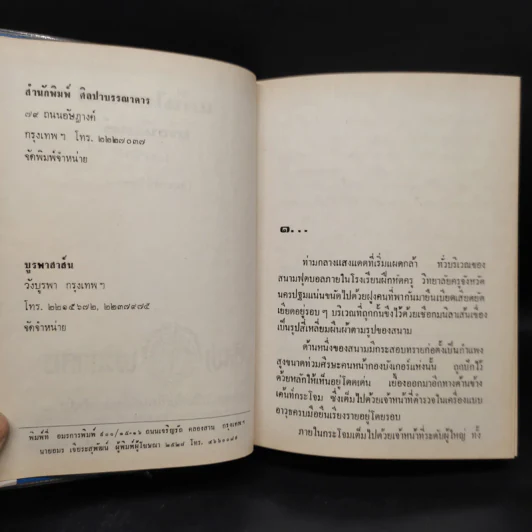 สำนักพิมพ์ ศิลปาบรรณาคาร
๗๙ ถนนอัษฎางค์
กรุงเทพฯ โทร. ๒๒๒๗๐๓๗
จัดพิมพ์จำหน่าย
บูรพาสาส์น
วังบูรพา กรุงเทพฯ
โทร. ๒๒๑๕๖๗๒, ๒๒๓๗๙๗๕
จัดจำหน่าย
พิมพ์ที่ อมรการพิมพ์ ๕๐๐/๑๕-๑๖ ถนนเจริญรัถ คลองสาน กรุงเทพฯ
นายอมร เจียระสุพัฒน์ ผู้พิมพ์ผู้โฆษณา ๒๕๒๘ โทร.
๑...
ท่ามกลางแสงแดดที่เริ่มแผดกล้า ทั่วบริเวณของ
สนามฟุตบอลภายในโรงเรียนฝึกหัดครู วิทยาลัยครูจังหวัด
นครปฐมแน่นขนัดไปด้วยฝูงคนที่พากันมายืนเบียดเสียดยัด
เยียดอยู่รอบๆ บริเวณที่ถูกกั้นขึงไว้ด้วยเชือกมนิลาเส้นเขื่อง
เป็นรูปสี่เหลี่ยมผืนผ้าตามรูปของสนาม
ด้านหนึ่งของสนามมีกระสอบทรายก่อตั้งเป็นกำแพง
สูงขนาดท่วมศีรษะคนหน้ากองบังเกอร์แห่งนั้น ถูกปักไว้
ด้วยหลักให้เห็นอยู่โดดเด่น เยื้องออกมาอีกทางด้านข้าง
เต้นท์กระโจม ซึ่งเต็มไปด้วยเจ้าหน้าที่ตำรวจในเครื่องแบบ
อาวุธครบมือยืนเรียงรายอยู่โดยรอบ
ภายในกระโจมเต็มไปด้วยเจ้าหน้าที่ระดับผู้ใหญ่ ทั้ง